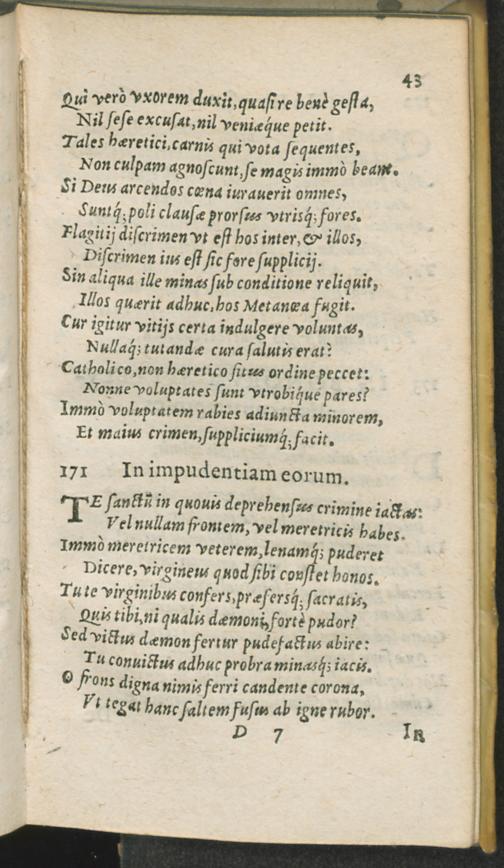 43
Qui verò vxorem duxit, quasi re benè gesta,
Nil sese excusat, nil veniæque petit.
Tales hæretici, carnis qui vota sequentes,
Non culpam agnoscunt, se magis immò beant.
Si Deus arcendos cœna iurauerit omnes,
Suntq́; poli clausæ prorsus vtrisq́; fores.
Flagitij discrimen vt est hos inter, & illos,
Discrimen ius est sic fore supplicij.
Sin aliqua ille minas sub conditione reliquit,
Illos quærit adhuc, hos Metanœa fugit.
Cur igitur vitijs certa indulgere voluntas,
Nullaq́; tutandæ cura salutis erat?
Catholico, non hæretico situs ordine peccet:
Nonne voluptates sunt vtrobique pares?
Immò voluptatem rabies adiuncta minorem,
Et maius crimen, suppliciumq́, facit.
171 In impudentiam eorum.
TE sanctū in quouis deprehensus crimine iactas:
Vel nullam frontem, vel meretricis habes.
Immò meretricem veterem, lenamq́; puderet
Dicere, virgineus quod sibi constet honos.
Tute virginibus confers, præfersq́; sacratis,
Quis tibi, ni qualis dæmoni, fortè pudor?
Sed victus dæmon fertur pudefactus abire:
Tu conuictus adhuc probra minasq́; iacis.
O frons digna nimis ferri candente corona,
Vt tegat hanc saltem fusus ab igne rubor.
D 7 IN